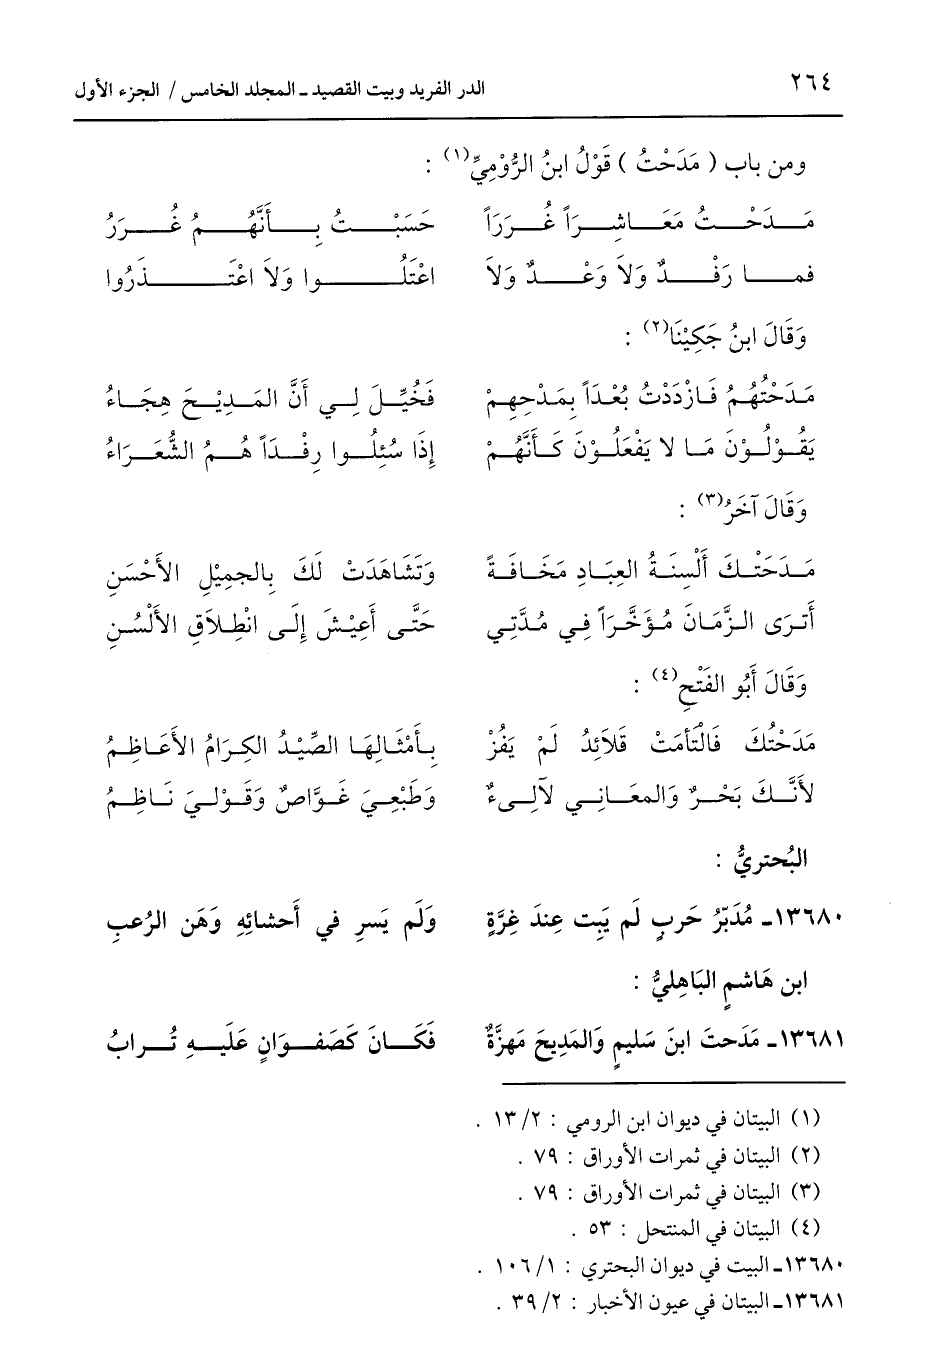 ٢٦٤ الدر الفريد وبيت القصيد ـ المجلد الخامس / الجزء الأول
ومن باب ( مَدَحْتُ ) قَوْلُ ابنُ الرُّوْمِيِّ(١) :
مَدَحْتُ مَعَاشِرَاً غُرَرَاً حَسَبْتُ بِأَنَّهُمُ غُرَرُ
فما رَفْدٌ وَلاَ وَعْدٌ وَلاَ اعْتَلُّوا وَلاَ اعْتَذَرُوا
وَقَالَ ابنُ جَكِيْنَا(٢) :
مَدَحْتُهُمُ فَازْدَدْتُ بُعْدَاً بِمَدْحِهِمْ فَخُيِّلَ لِي أَنَّ المَدِيْحَ هِجَاءُ
يَقُوْلُوْنَ مَا لا يَفْعَلُوْنَ كَأَنَّهُمْ إِذَا سُئِلُوا رِفْدَاً هُمُ الشُّعَرَاءُ
وَقَالَ آخَرُ(٣) :
مَدَحَتْكَ أَلْسِنَةُ العِبَادِ مَخَافَةً وَتَشَاهَدَتْ لَكَ بِالجميْلِ الأَحْسَنِ
أَتَرَى الزَّمَانَ مُؤَخَّرَاً فِي مُدَّتِي حَتَّى أَعِيْشَ إِلَى انْطِلاَقِ الأَلْسُنِ
وَقَالَ أَبُو الفَتْحِ(٤) :
مَدَحْتُكَ فَالْتَأمَتْ قَلاَئِدُ لَمْ يَفُزْ بِأَمْثَالِهَا الصِّيْدُ الكِرَامُ الأَعَاظِمُ
لأَنَّكَ بَحْرٌ وَالمعَانِي لآلِىءٌ وَطَبْعِيَ غَوَّاصٌ وَقَوْلِيَ نَاظِمُ
البُحتريُّ :
١٣٦٨٠ـ مُدَبِّرُ حَربٍ لَم يَبِت عِندَ غِرَّةٍ وَلَم يَسرِ في أَحشائِهِ وَهَن الرُعبِ
ابن هَاشمٍ البَاهِليُّ :
١٣٦٨١ـ مَدَحتَ ابنَ سَليمٍ وَالمَدِيحَ مَهزَّةٌ فَكَانَ كَصَفوَانٍ عَلَيهِ تُرابُ
(١) البيتان في ديوان ابن الرومي : ١٣/٢ .
(٢) البيتان في ثمرات الأوراق : ٧٩ .
(٣) البيتان في ثمرات الأوراق : ٧٩ .
(٤) البيتان في المنتحل : ٥٣ .
١٣٦٨٠ـ البيت في ديوان البحتري : ١٠٦/١ .
١٣٦٨١ـ البيتان في عيون الأخبار : ٣٩/٢ .